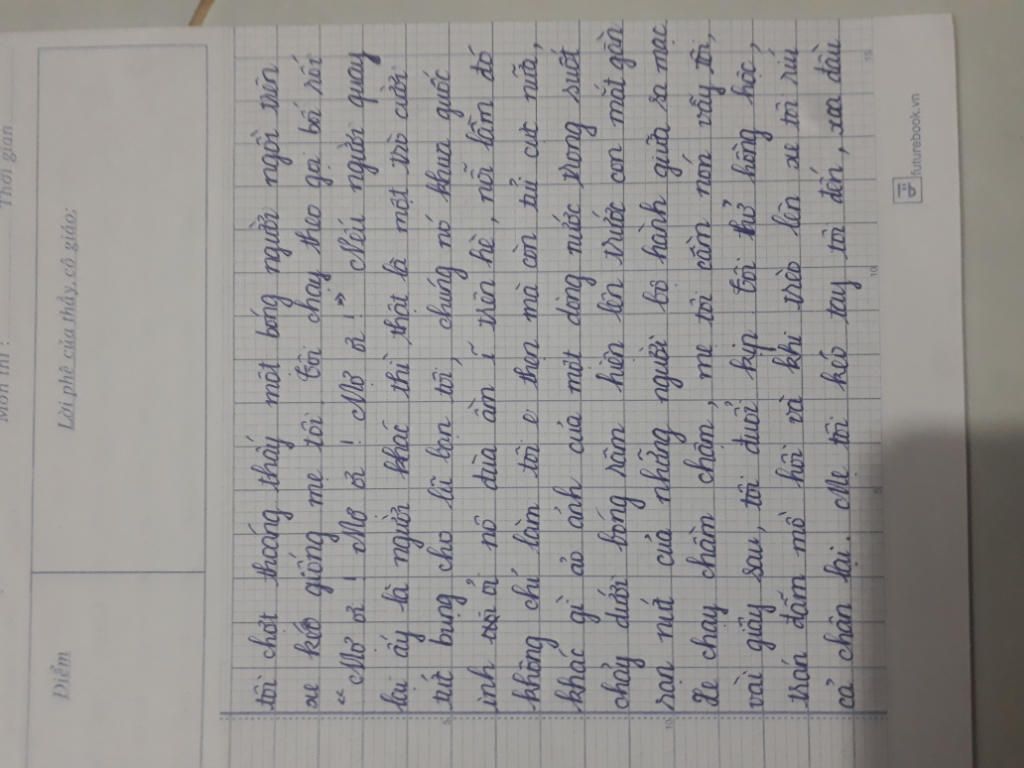 Môn thi :
Thời gian
Điểm
Lời phê của thầy, cô giáo:
tôi chợt thoáng thấy một bóng người ngồi trên
xe kéo giống mẹ tôi. Tôi chạy theo gọi bối rối
"Mợ ơi! Mợ ơi! Mợ ơi!" Nếu người quay
lại ấy là người khác thì thật là một trò cười
tức bụng cho lũ bạn tôi, chúng nó khua guốc
inh ỏi nô đùa ầm ĩ trên hè, nỗi lầm đó
không chỉ làm tôi e thẹn mà còn tủi cực nữa,
khác gì ảo ảnh của một dòng nước trong suốt
chảy dưới bóng râm hiện lên trước con mắt gần
rạn nứt của những người bộ hành giữa sa mạc
Xe chạy chầm chậm, mẹ tôi cầm nón vẫy tôi,
vài giây sau, tôi đuổi kịp. Tôi thở hồng hộc,
trán đẫm mồ hôi và khi trèo lên xe tôi ríu
cả chân lại. Mẹ tôi kéo tay tôi đến, xoa đầu
5
10
5
10
15
futurebook.vn